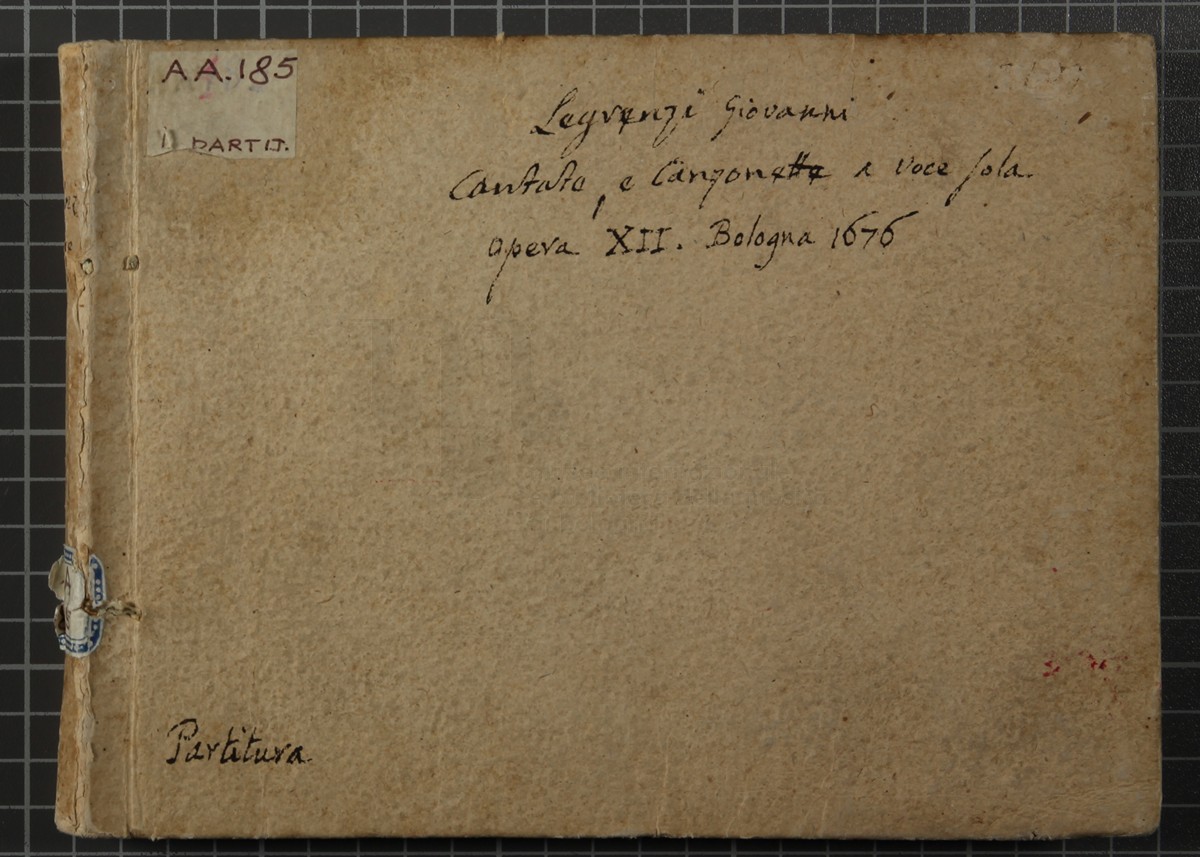 AA.185
1 PARTIT.
Legrenzi Giovanni
Cantate, e Canzonette a voce sola.
opera XII. Bologna 1676
Partitura.